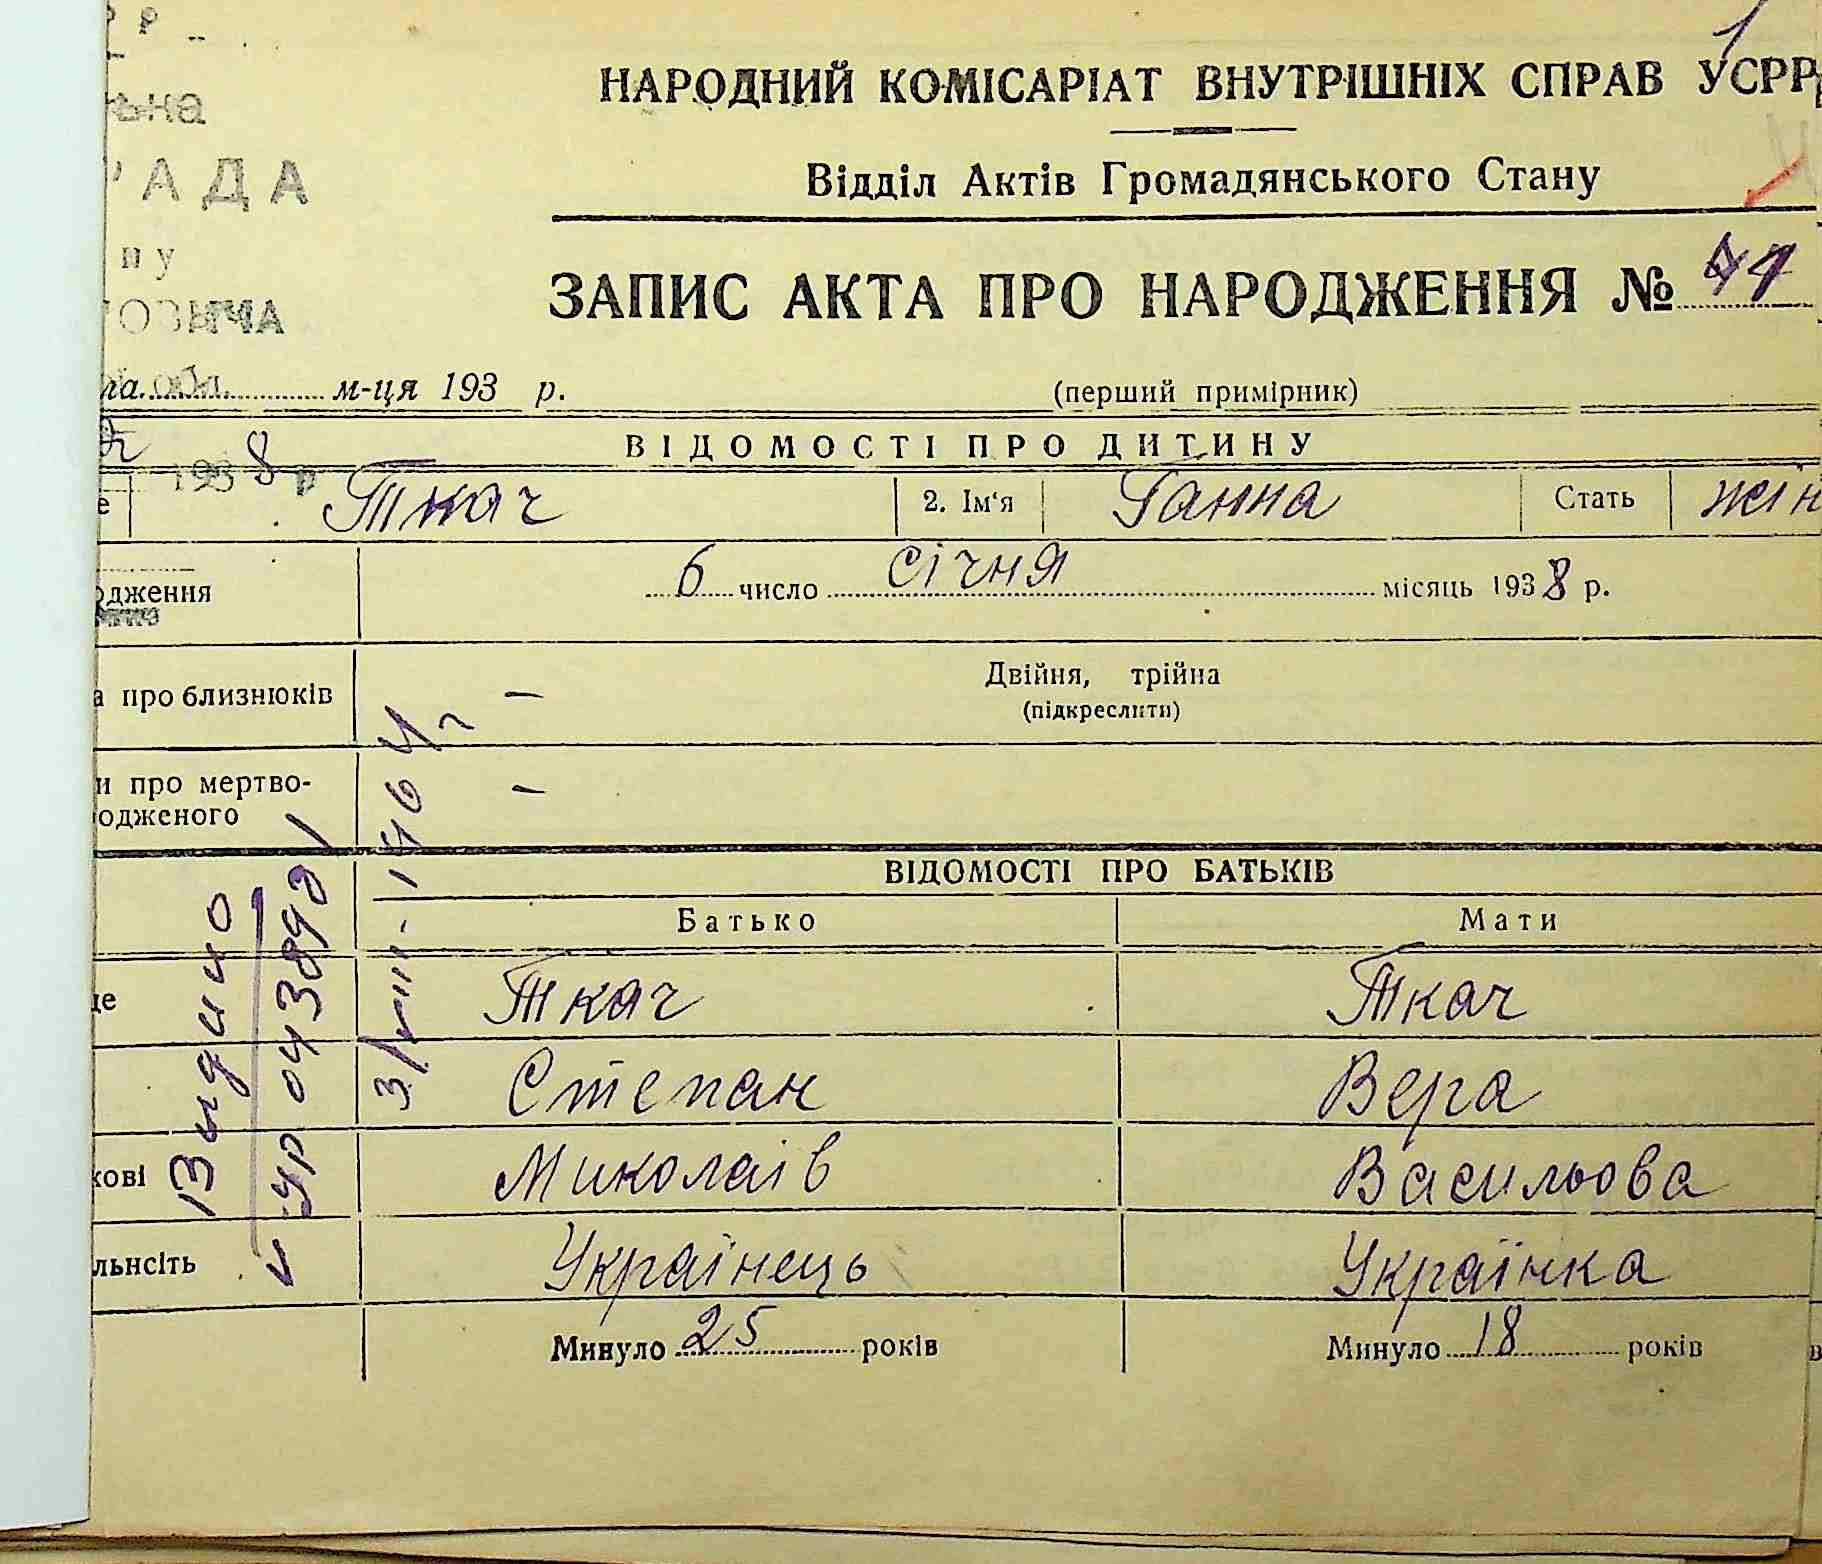 1
НАРОДНИЙ КОМІСАРІАТ ВНУТРІШНІХ СПРАВ УСРР
ьна
Відділ Актів Громадянського Стану
РАДА
ну
ЗАПИС АКТА ПРО НАРОДЖЕННЯ №
ОВИЧА
обл. м-ця 193 р. (перший примірник)
ВІДОМОСТІ ПРО ДИТИНУ
1938 р
е Ткач 2. Ім'я Ганна Стать жін
одження 6 число січня місяць 1938 р.
а про близнюків — Двійня, трійна
(підкреслити)
и про мертво-
одженого —
ВІДОМОСТІ ПРО БАТЬКІВ
Батько Мати
це Ткач Ткач
Степан Вера
кові Миколаів Васильова
льнсіть Українець Українка
Минуло 25 років Минуло 18 років
Видано
3/VIII-1964